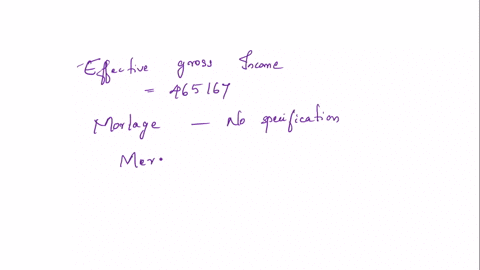 Effective gross Income
= 465167
Morlage — No specification
Mer.